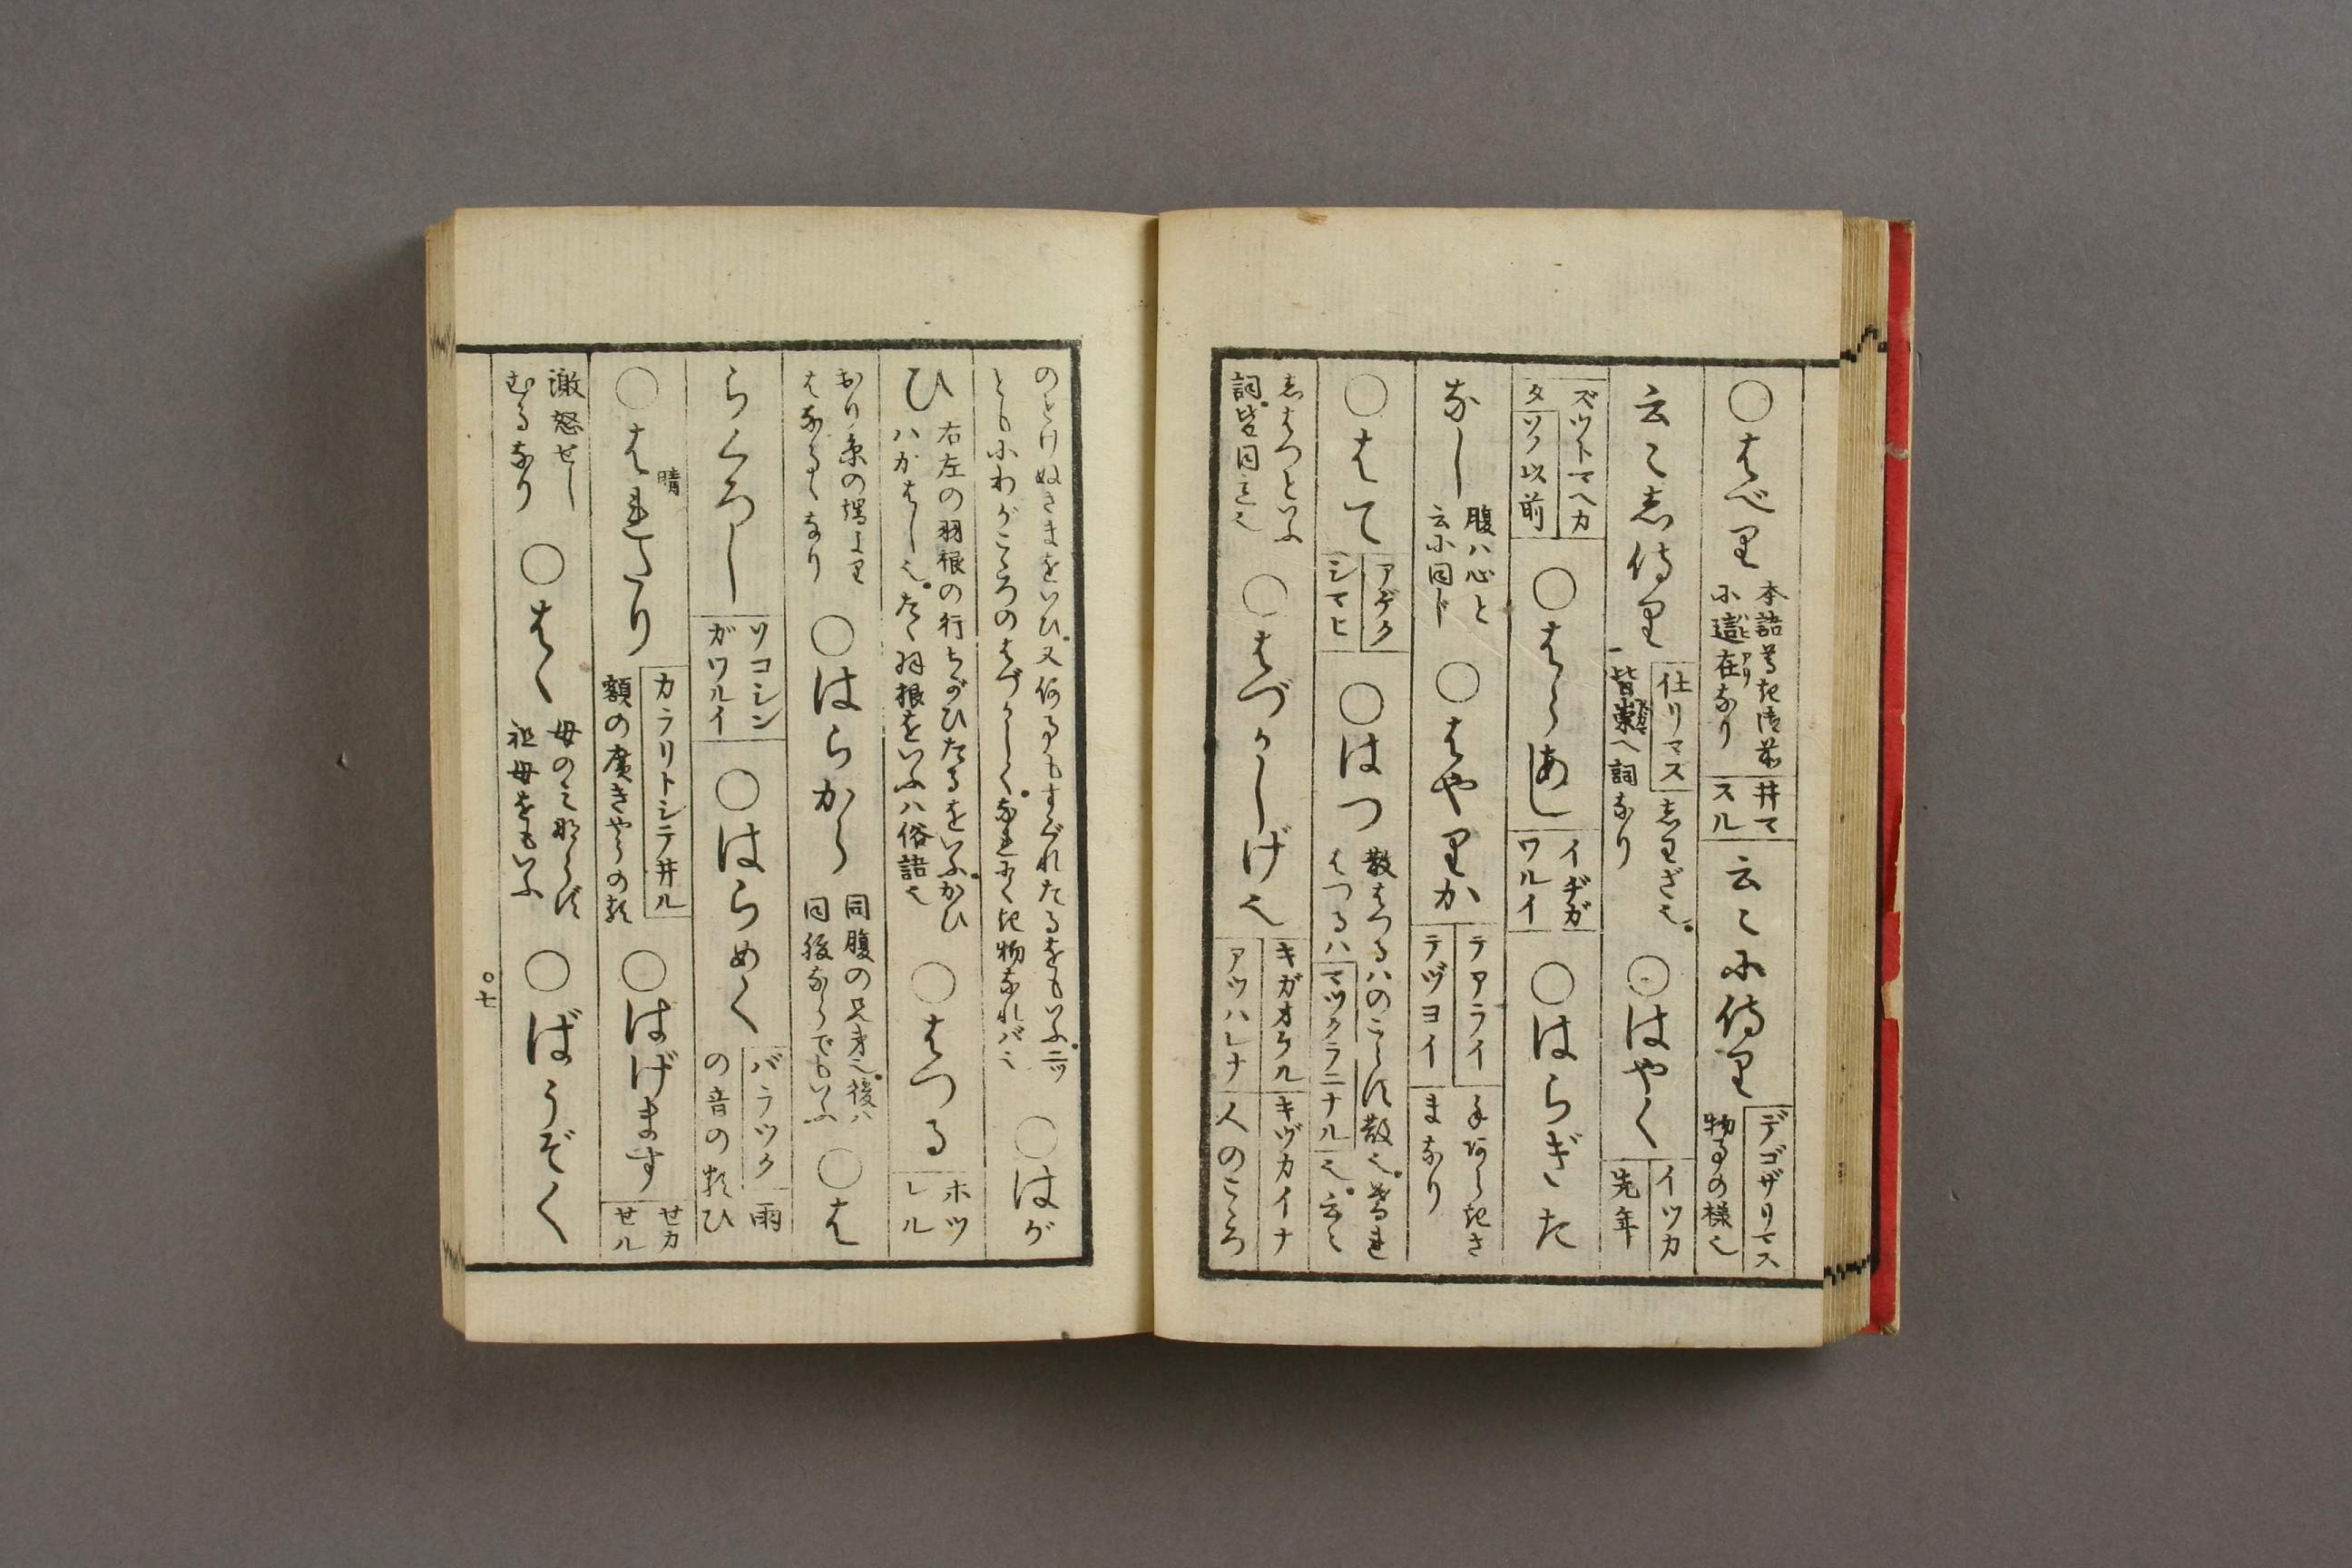 ○はべり 本語尊き御前に這在なり 井マスル 云々に侍り デゴザリマス 物事の様也
云々し侍り 仕リマス しわざ也 皆崇へ詞なり ○はやく イツカ先年
ズツトマヘカタ ツノ以前 ○はらあし イヂガワルイ ○はらぎた
なし 腹ハ心と云に同ド ○はやりか テアライ テヅヨイ 手あらきさまなり
○はて アゲク シマヒ ○はつ 散はつるハのこらず散也 はつるハ マツクラニナル 也 云々
しはつといふ詞皆同意也 ○はづかしげ也 キガオケル アツハレナ キヅカイナ 人のこゝろ
のとけぬさまをいひ又何事もすぐれたるをもいふ二ツ
ともにわがこゝろのはづかしく 物なれバ也 ○はが
ひ 右左の羽根の行ちがひたるをいふかひハかはし也たゞ羽根をいふハ俗語也 ○はつる ホツレル
おり糸の端より はなるゝなり ○はらから 同腹の兄弟也後ハ同腹ならでもいふ ○は
らくろし ツコシンガワルイ ○はらめく バラツク 雨の音の類ひ
○はれたり 晴 カラリトシテ井ル 額の廣きやうの類 ○はげます せカせル
激怒せしむるなり ○はゝ 母のみならず祖母をもいふ ○ばうぞく
七